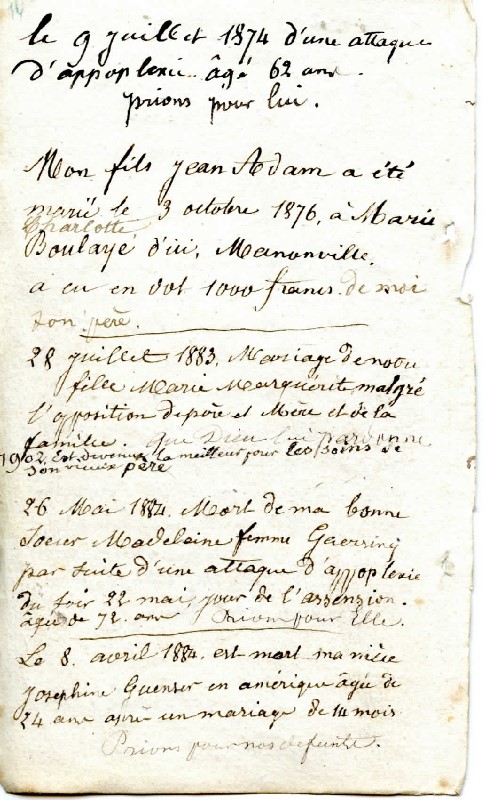 le 9 juillet 1874 d'une attaque
d'appoplexie âgé 62 ans.
prions pour lui.
Mon fils jean Adam a été
marié le 3 octobre 1876, à Marie
Charlotte
Boulaye d'ici, Manonville,
a eu en dot 1000 francs de moi
son père.
28 juillet 1883, Mariage de notre
fille Marie Marguerite, malgré
l'opposition de père et Mère et de la
famille. que Dieu lui pardonne
1902 Est devenue la meilleur pour les soins de
son vieux père
26 Mai 1884. Mort de ma bonne
Soeur Madeleine femme
par suite d'une attaque d'appoplexie
du soir 22 mai, jour de l'assension.
âgée de 72 ans Prions pour Elle.
Le 8. avril 1884. est mort ma nièce
Josephine Guenser en amérique âgée de
24 ans après un mariage de 14 mois
Prions pour nos defunts.